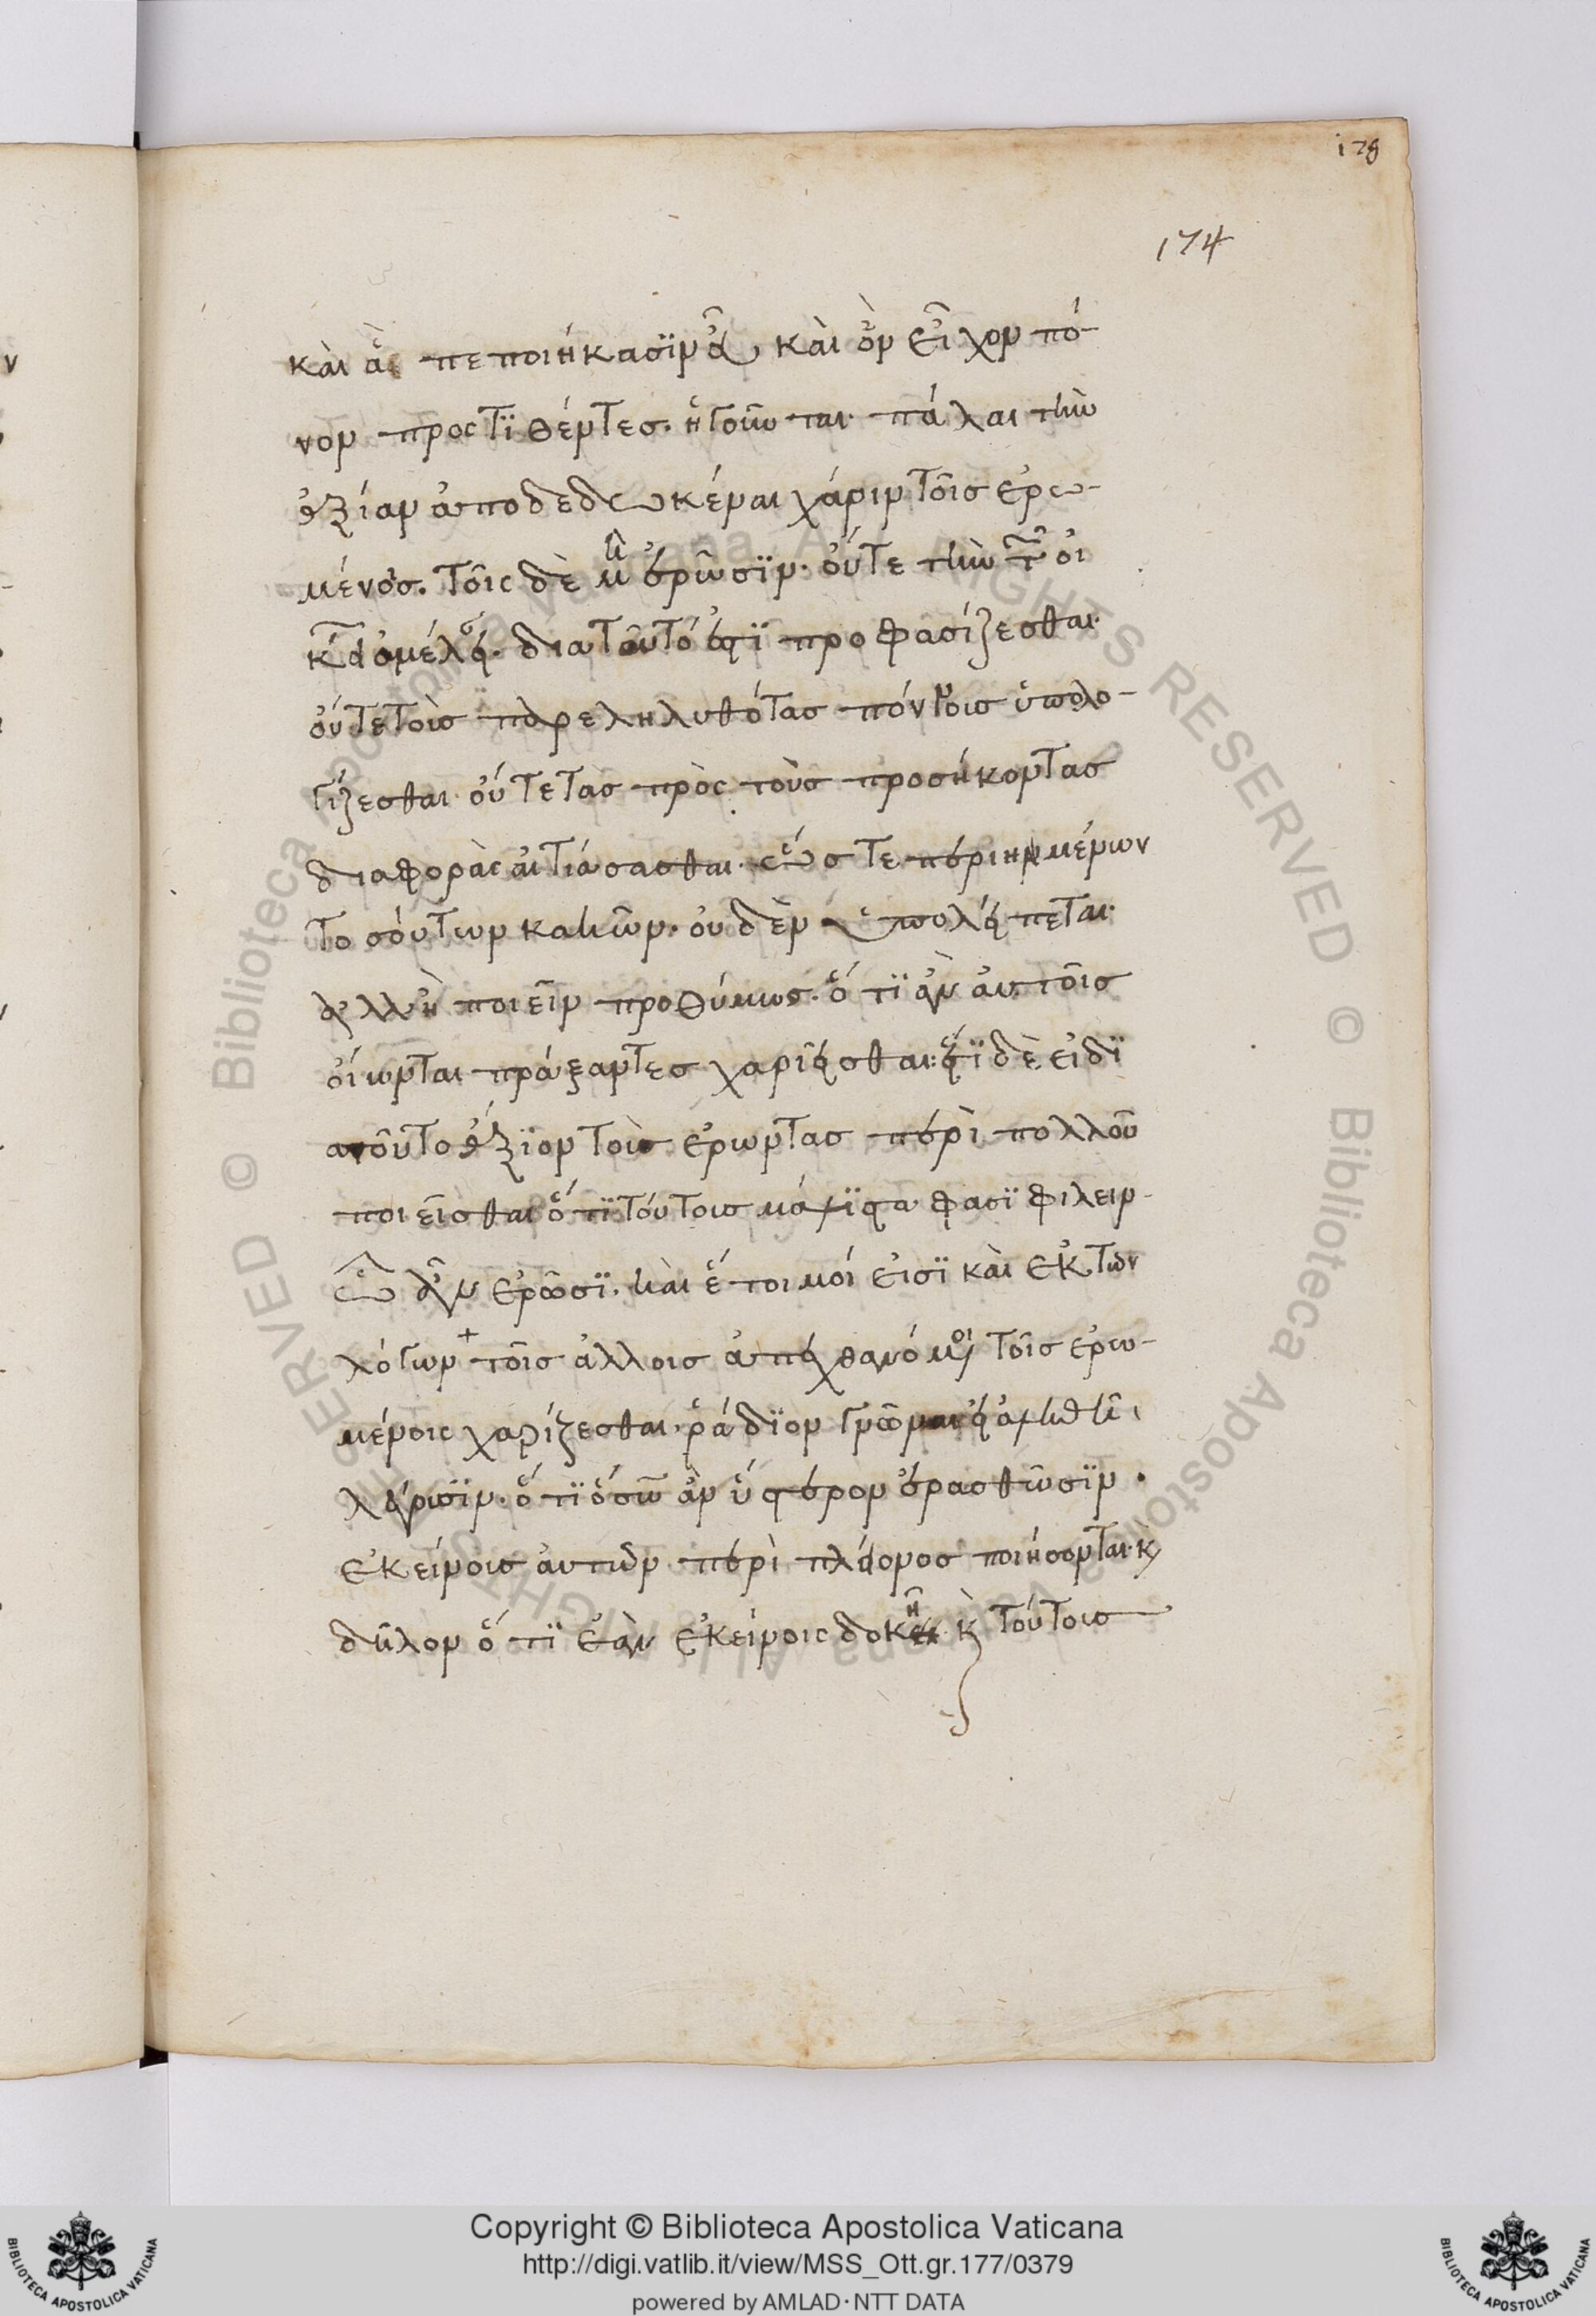 178
174
καὶ ἃ πεποιήκασϊν εὖ, καὶ ὃν εἶχον πό-
νον προστϊθέντες. ἡγοῦνται πάλαι τὴν
ἀξίαν ἀποδεδωκέναι χάριν τοῖς ἐρω-
μένοις. τοῖς δὲ μὴ ἐρῶσϊν. οὔτε τὴν τῶν οἰ
κείων ἀμέλειαν. διὰ τοῦτό ἐστϊ προφασίζεσθαι.
οὔτε τοὺς παρεληλυθότας πόνους ὑπολο-
γίζεσθαι. οὔτε τὰς πρὸς τοὺς προσήκοντας
διαφορὰς αἰτιάσασθαι. ὥστε περιῃρημένων
τοσούτων κακῶν. οὐδὲν ὑπολείπεται.
ἀλλ' ἢ ποιεῖν προθύμως. ὅ τϊ ἂν αὐτοῖς
οἴωνται πράξαντες χαριεῖσθαι: ἔτϊ δὲ εἰ δϊ
ατοῦτο ἄξϊον τοὺς ἐρῶντας περὶ πολλοῦ
ποιεῖσθαι ὅτϊ τούτους μάλϊστα φασϊ φιλειν
ὧν ἂν ἐρῶσϊ. καὶ ἕτοιμοί εἰσϊ καὶ ἐκ τῶν
λόγων + τοῖς ἄλλοις ἀπεχθανόμενοι τοῖς ἐρω-
μένοις χαρίζεσθαι. ῥάδϊον γνῶναι εἰ ἀληθῆ
λέγουσϊν. ὅτϊ ὅσων ἂν ὕστερον ἐρασθῶσϊν.
ἐκείνους αὐτῶν περὶ πλείονος ποιήσονται. κὶ
δῆλον ὅτϊ ἐὰν ἐκείνοις δοκῆ κὶ τούτους
Copyright © Biblioteca Apostolica Vaticana
http://digi.vatlib.it/view/MSS_Ott.gr.177/0379
powered by AMLAD·NTT DATA